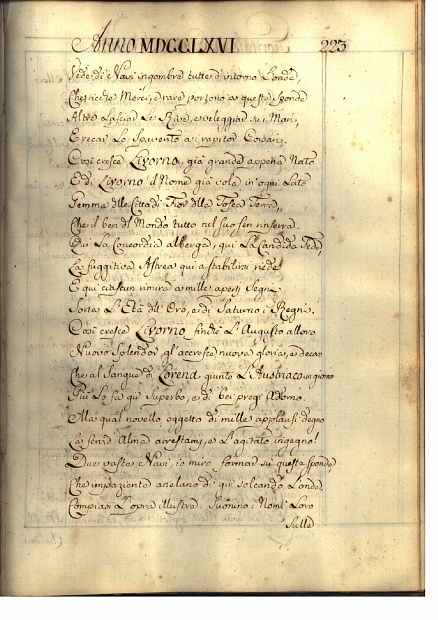 Anno MDCCLXVI 223
Vede di Navi ingombre tutte d'intorno L'onde,
Che ricche Merci, e rare portono a queste Sponde
Altre Lasciar Le Rive, e veleggiar su i Mari,
E recar Lo Spavento a i rapitor Corsari.
Così cresce Livorno, già grande appena Nato
E di Livorno il Nome già vola in ogni Lato
Gemma dlle Cittadi Fior dlla Tosca Terra,
Che il ben dl Mondo tutto nel suo sen rinserra.
Qui La Concordia alberga, qui La Candida Fede,
La fuggitiva Astrea qui a stabilirsi riede
E qui ciascun rimira a mille aperti Segni
Sorta L'Età dll'Oro, e di Saturno i Regni.
Così cresce Livorno finchè L'Augusto alloro
Nuovo Splendor gl'accresce nuova gloria, e decoro
Che al Sangue di Lorena giunto L'Austriaco un giorno
Più Lo fa gir Superbo, e di bei pregi Adorno.
Ma qual novello oggetto di mille applausi degno
La Alma arrestami, e L'agitato ingegno!
Due vaste Navi, io miro formar su queste sponde,
Che impaziente anelano di gir solcando L'onde,
Compiasi L'opra illustre: Suonino i Nomi Loro
Sulle